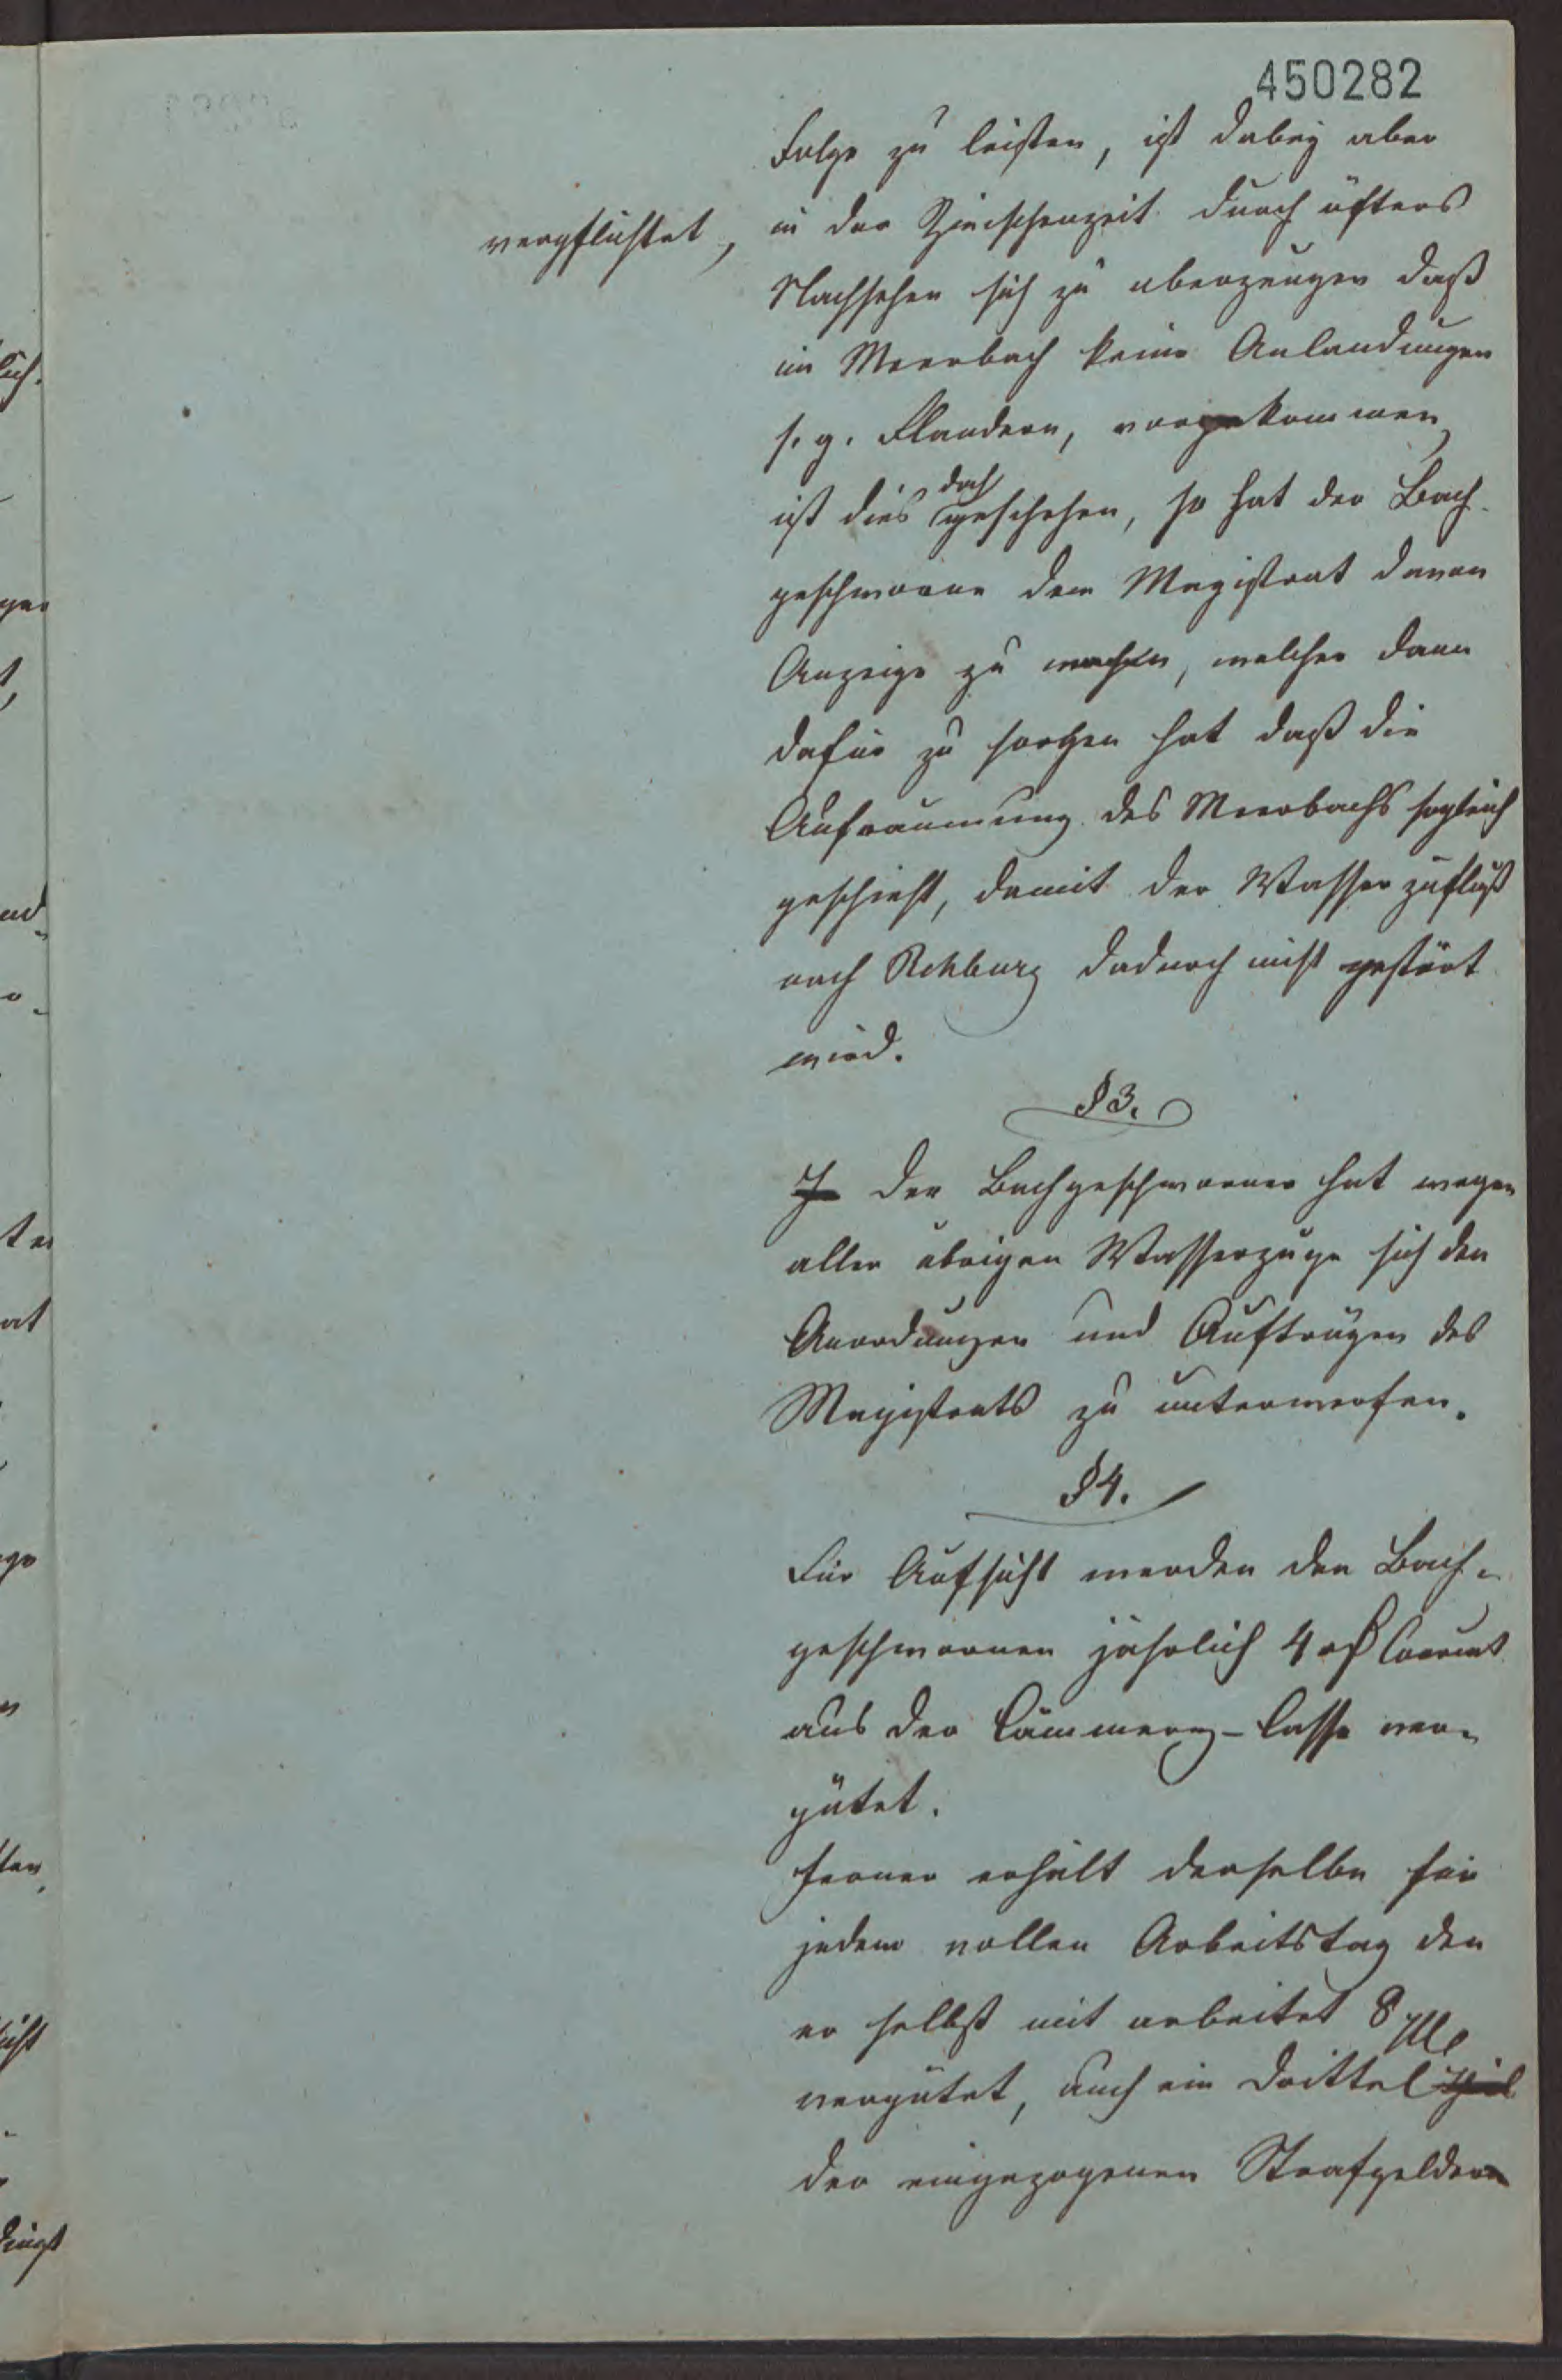 450282
Folge zu leisten, ist dabey aber
verpflichtet,
in der Zwischenzeit durch öfters
Nachsehen sich zu uberzeugen daß
im Meerbach keine Anlandungen
s. g. Flandern, vorgekommen,
ist dies doch geschehen, so hat der Bach-
geschworne dem Magistrat davon
Anzeige zu machen, welcher dann
dafür zu sorgen hat daß die
Aufräumung des Meerbachs sogleich
geschieht, damit der Wasserzufluß
nach Rehburg dadurch nicht gestört
wird.
§ 3.
Der Bachgeschworner hat wegen
aller übrigen Wasserzüge sich den
Anordungen und Aufträgen des
Magistrats zu unterwerfen.
§ 4.
Für Aufsicht werden den Bach-
geschwornen jährlich 4 rß Courant
aus der Cämmerey-Casse ver-
gütet.
Ferner erhält derselbe für
jedem vollen Arbeitstag den
er selbst mit arbeitet 8 ggr
vergütet, auch ein Drittel
der eingezogenen Strafgelder